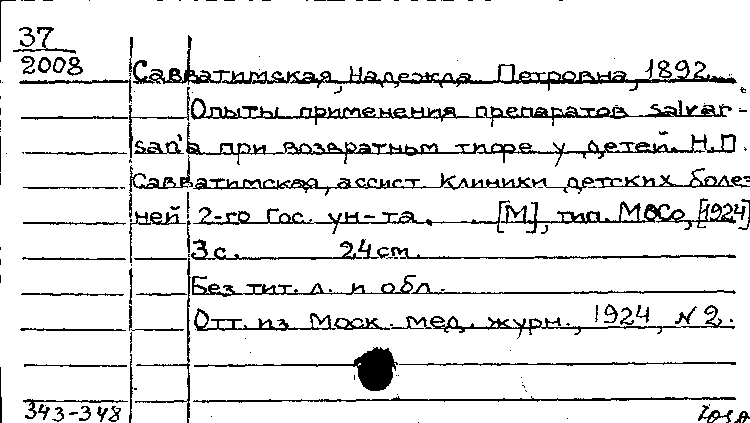 37
2008
Савватимская, Надежда Петровна, 1892
Опыты применения препаратов salvar-
san'a при возвратном тифе у детей. Н.П.
Савватимская, ассист. Клиники детских болез
ней 2-го Гос. ун-та. [М], тип. МОСо, [1924]
3 с. 24 см.
Без тит. л. и обл.
Отт. из Моск. мед. журн., 1924, N 2.
343-348